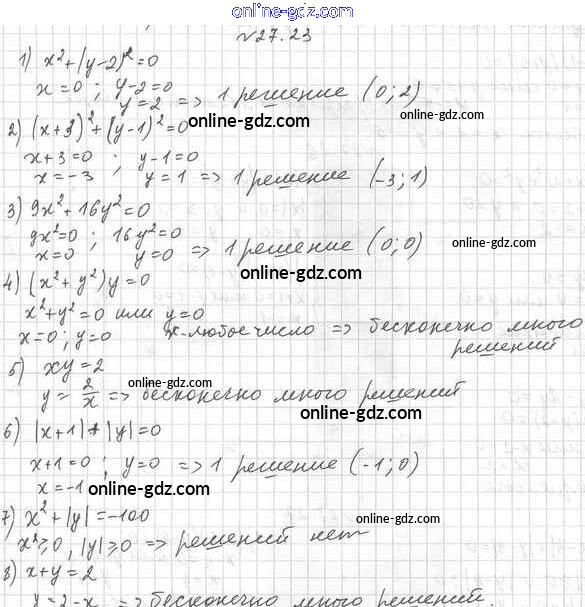 online-gdz.com
№27.23
1) x²+(y-2)²=0
x=0 ; y-2=0
y=2 => 1 решение (0;2)
online-gdz.com
online-gdz.com
2) (x+3)²+(y-1)²=0
x+3=0 ; y-1=0
x=-3 y=1 => 1 решение (-3;1)
3) 9x²+16y²=0
9x²=0 ; 16y²=0
x=0 y=0 => 1 решение (0;0)
online-gdz.com
online-gdz.com
4) (x²+y²)y=0
x²+y²=0 или y=0
x=0; y=0 x-любое число => бесконечно много
решений
5) xy=2
online-gdz.com
y=2/x => бесконечно много решений
online-gdz.com
6) |x+1|+|y|=0
x+1=0 ; y=0 => 1 решение (-1;0)
x=-1
online-gdz.com
7) x²+|y|=-100
online-gdz.com
x²≥0, |y|≥0 => решений нет
8) x+y=2
online-gdz.com
y=2-x => бесконечно много решений.